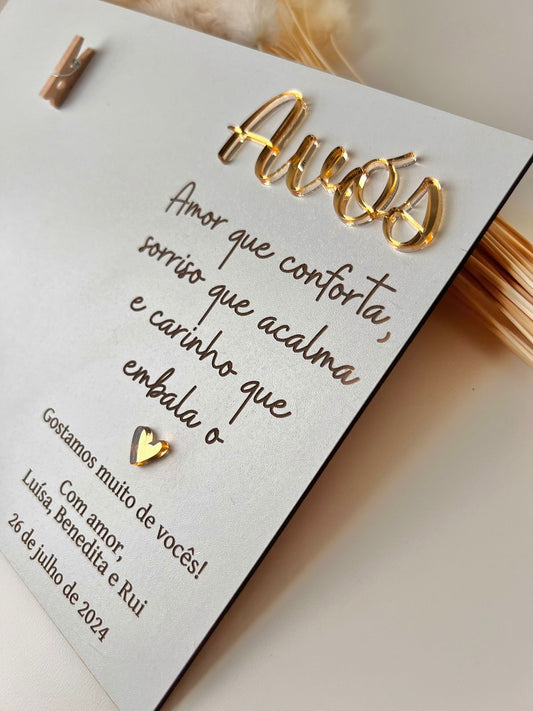 Avós
Amor que conforta,
sorriso que acalma
e carinho que
embala o
Gostamos muito de vocês!
Com amor,
Luísa, Benedita e Rui
26 de julho de 2024